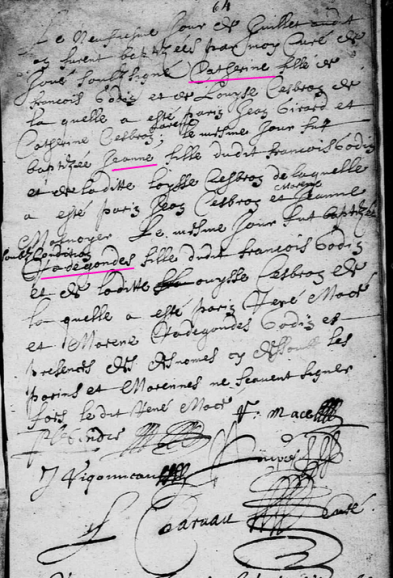 64
Le Neufiesme Jour de Juillet audit
an furent baptizées par moy Curé de
soubsigné Catherine fille de
francois Godin et de Louyse Cesbron de
la quelle a esté parin Jean Girard et
Catherine Cesbron, le mesme Jour fut
baptizée Jeanne fille dudit francois Godin
et de laditte Loyse Cesbron de laquelle
a esté parin Jean Cesbron et Jeanne
Marene
Le mesme Jour fut baptizée
soubz condition
Radegondes fille dudit francois Godin
et de ladite Louysse Cesbron de
la quelle a esté parin René Macé
et Marene Radegondes Godin et
presences des desnomes cy dessoubs les
parins et Marennes ne scavent signer
fors le dit René Macé
R. Mace
J Vigonneau
Garuau
Curé.